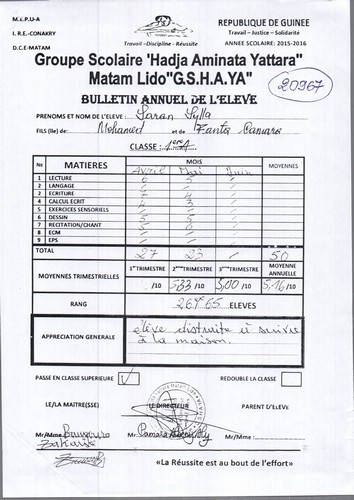 M.E.P.U-A
I. R.E.-CONAKRY
D.C.E-MATAM
Travail -Discipline - Réussite
REPUBLIQUE DE GUINEE
Travail – Justice – Solidarité
ANNEE SCOLAIRE: 2015-2016
Groupe Scolaire 'Hadja Aminata Yattara"
Matam Lido"G.S.H.A.YA"
BULLETIN ANNUEL DE L'ELEVE
20967
PRENOMS ET NOM DE L'ELEVE : Saran Sylla
FILS (lle) de: Mohamed et de Fanta Camara
CLASSE :
No MATIERES MOIS MOYENNES
Avril Mai Juin
1 LECTURE 6 5
2 LANGAGE
3 ECRITURE 7 4
4 CALCUL ECRIT 4 3
5 EXERCICES SENSORIELS
6 DESSIN 5 5
7 RECITATION/CHANT 5 6
8 ECM
9 EPS
TOTAL 27 23 50
MOYENNES TRIMESTRIELLES 1er TRIMESTRE 2ème TRIMESTRE 3ème TRIMESTRE MOYENNE ANNUELLE
/10 5,83 /10 5,00 /10 5,16 /10
RANG 26è/65 ELEVES
APPRECIATION GENERALE élève distraite à suivre
à la maison.
PASSÉ EN CLASSE SUPERIEURE REDOUBLE LA CLASSE
LE/LA MAITRE(SSE) LE DIRECTEUR PARENT D'ELEVE
Mr/Mme Mr. Camara Mr/Mme :
«La Réussite est au bout de l'effort»